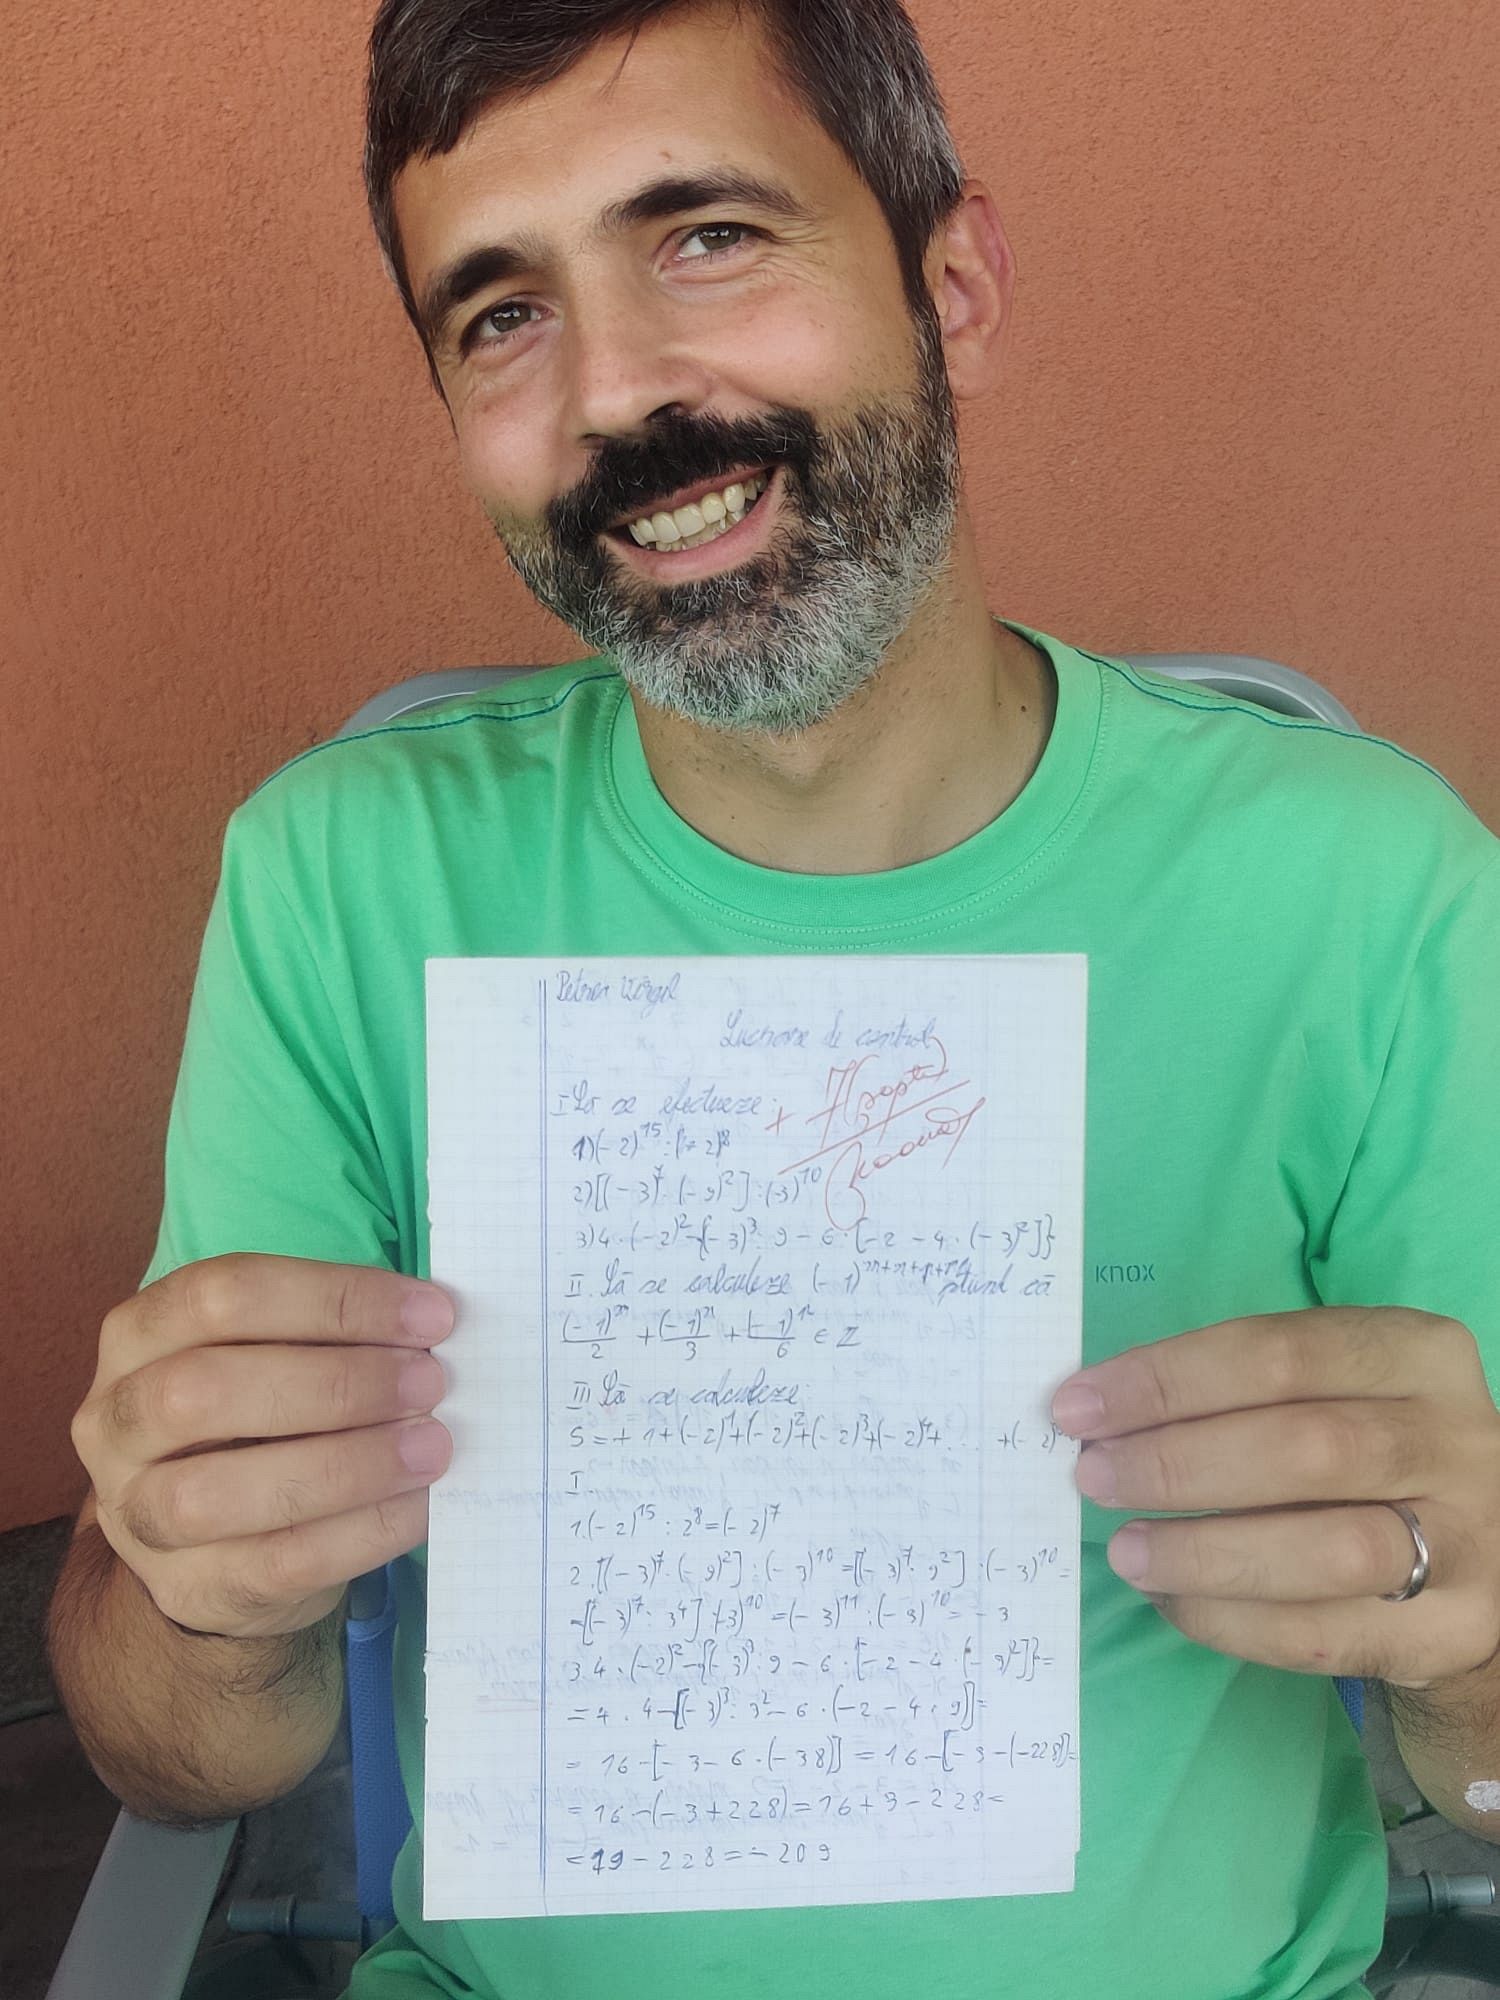 Petrea Virgil
Lucrare de control
+7(șapte)
I Să se efectueze:
1)(-2)¹⁵:(-2)⁸
2)[(-3)⁷·(-9)²]:(-3)¹⁰
3)4·(-2)²-{(-3)³:9-6·[-2-4·(-3)²]}
II. Să se calculeze (-1)ᵐ⁺ⁿ⁺ᵖ⁺ știind că
(-1)ᵐ/2+(-1)ⁿ/3+(-1)ᵖ/6∈Z
III Să se calculeze:
S=+1+(-2)¹+(-2)²+(-2)³+(-2)⁴+... +(-2)
I.
1.(-2)¹⁵:2⁸=(-2)⁷
2.[(-3)⁷·(-9)²]:(-3)¹⁰=[(-3)⁷·9²]:(-3)¹⁰=
=[(-3)⁷·3⁴]:(-3)¹⁰=(-3)¹¹:(-3)¹⁰=-3
3.4·(-2)²-{(-3)³:9-6·[-2-4·(-3)²]}=
=4·4-[(-3)³:3²-6·(-2-4·9)]=
=16-[-3-6·(-38)]=16-[-3-(-228)]=
=16-(-3+228)=16+3-228=
=19-228=-209
KNOX